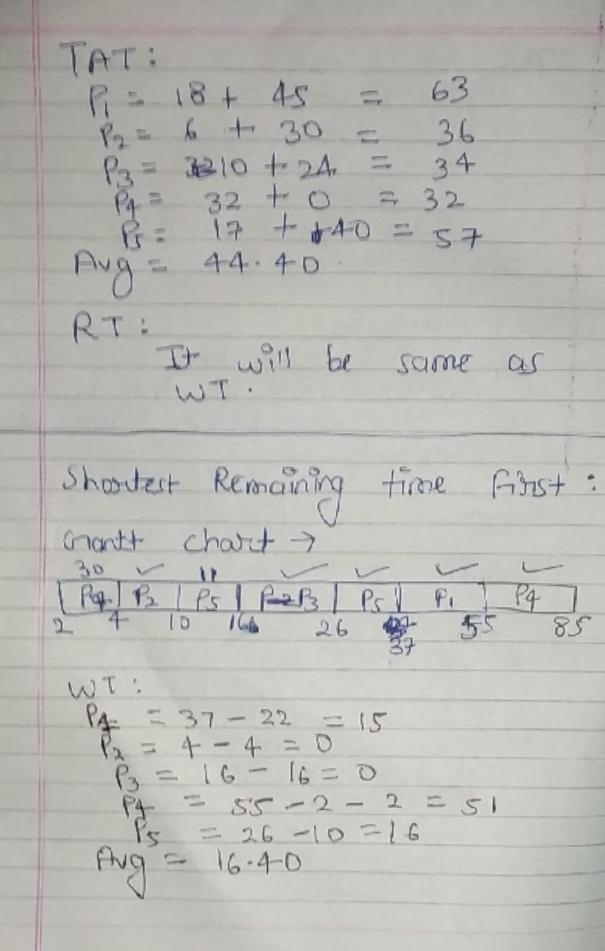 TAT:
P1 = 18 + 45 = 63
P2 = 6 + 30 = 36
P3 = 10 + 24 = 34
P4 = 32 + 0 = 32
P5 = 17 + 40 = 57
Avg = 44.40
RT:
It will be same as
WT.
Shortest Remaining time first:
Gantt chart →
30 ✓ 11 ✓ ✓ ✓ ✓
P4 P2 P5 P3 P5 P1 P4
2 4 10 16 26 37 55 85
WT:
= 37 - 22 = 15
P2 = 4 - 4 = 0
P3 = 16 - 16 = 0
P4 = 55 - 2 - 2 = 51
P5 = 26 - 10 = 16
Avg = 16.40